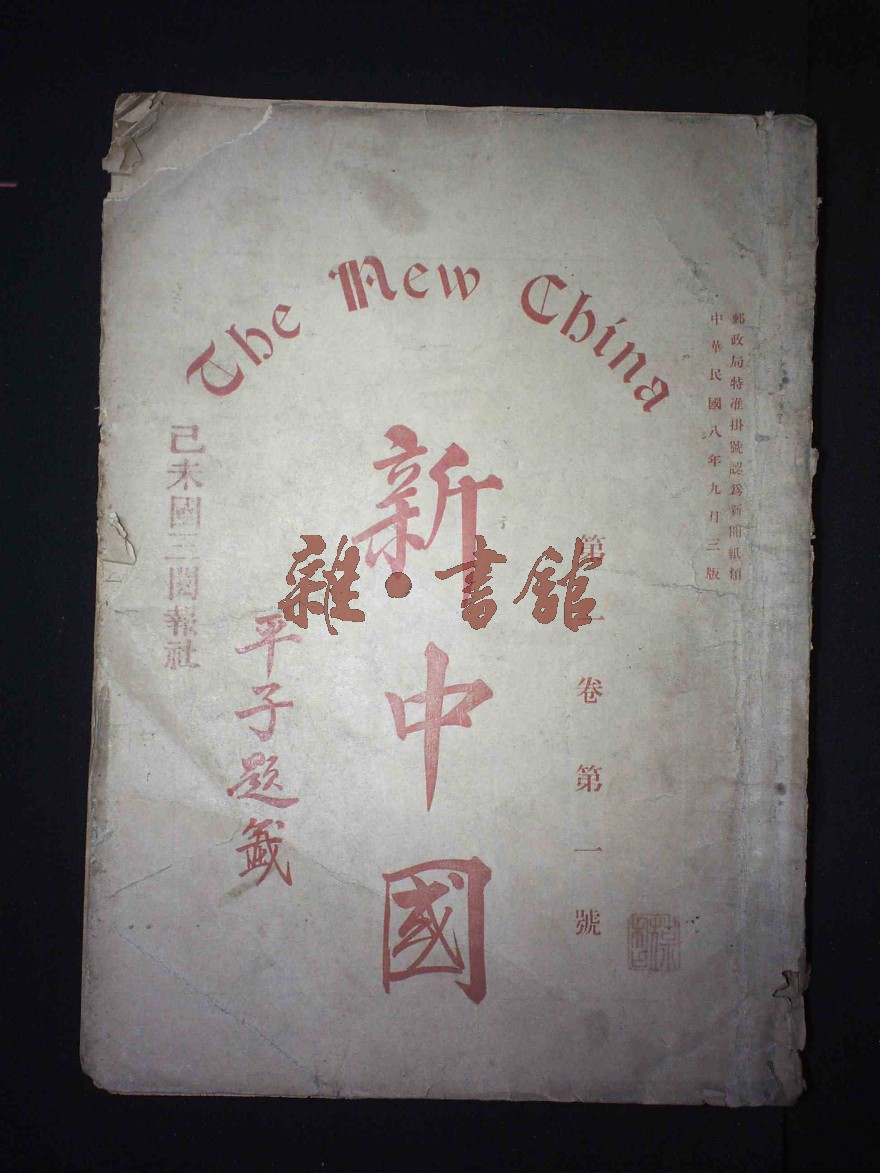 The New China
郵政局特准掛號認爲新聞紙類
中華民國八年九月三版
第一卷第一號
新中國
平子題籤
己未國三閱報社
雜·書館